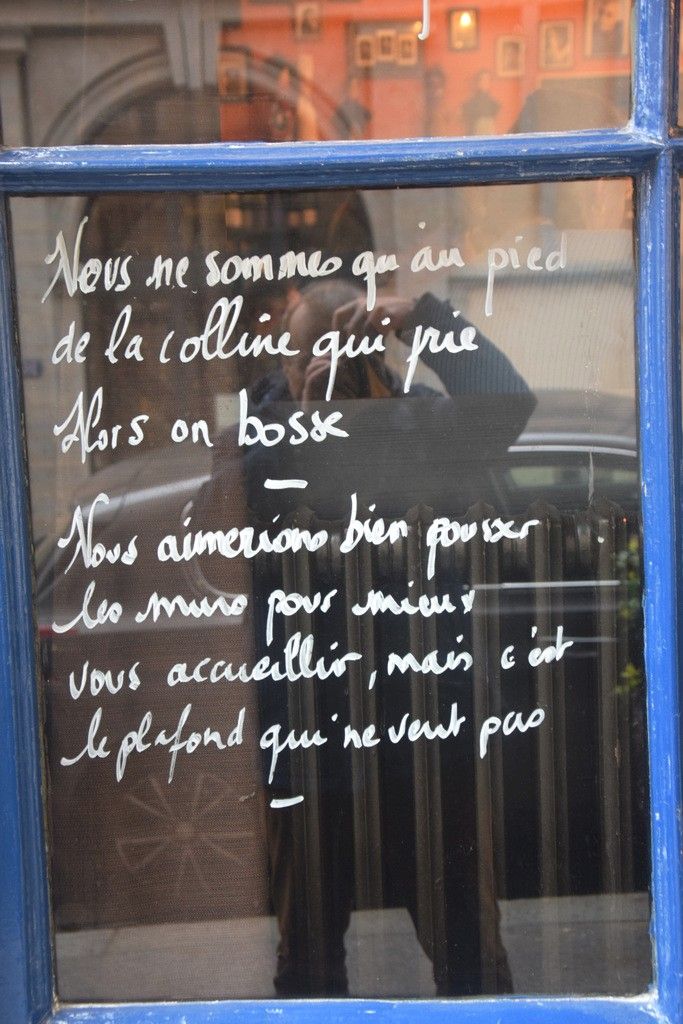 Nous ne sommes qu'au pied
de la colline qui prie
Alors on bosse
Nous aimerions bien pousser
les murs pour mieux
vous accueillir, mais c'est
le plafond qui ne veut pas